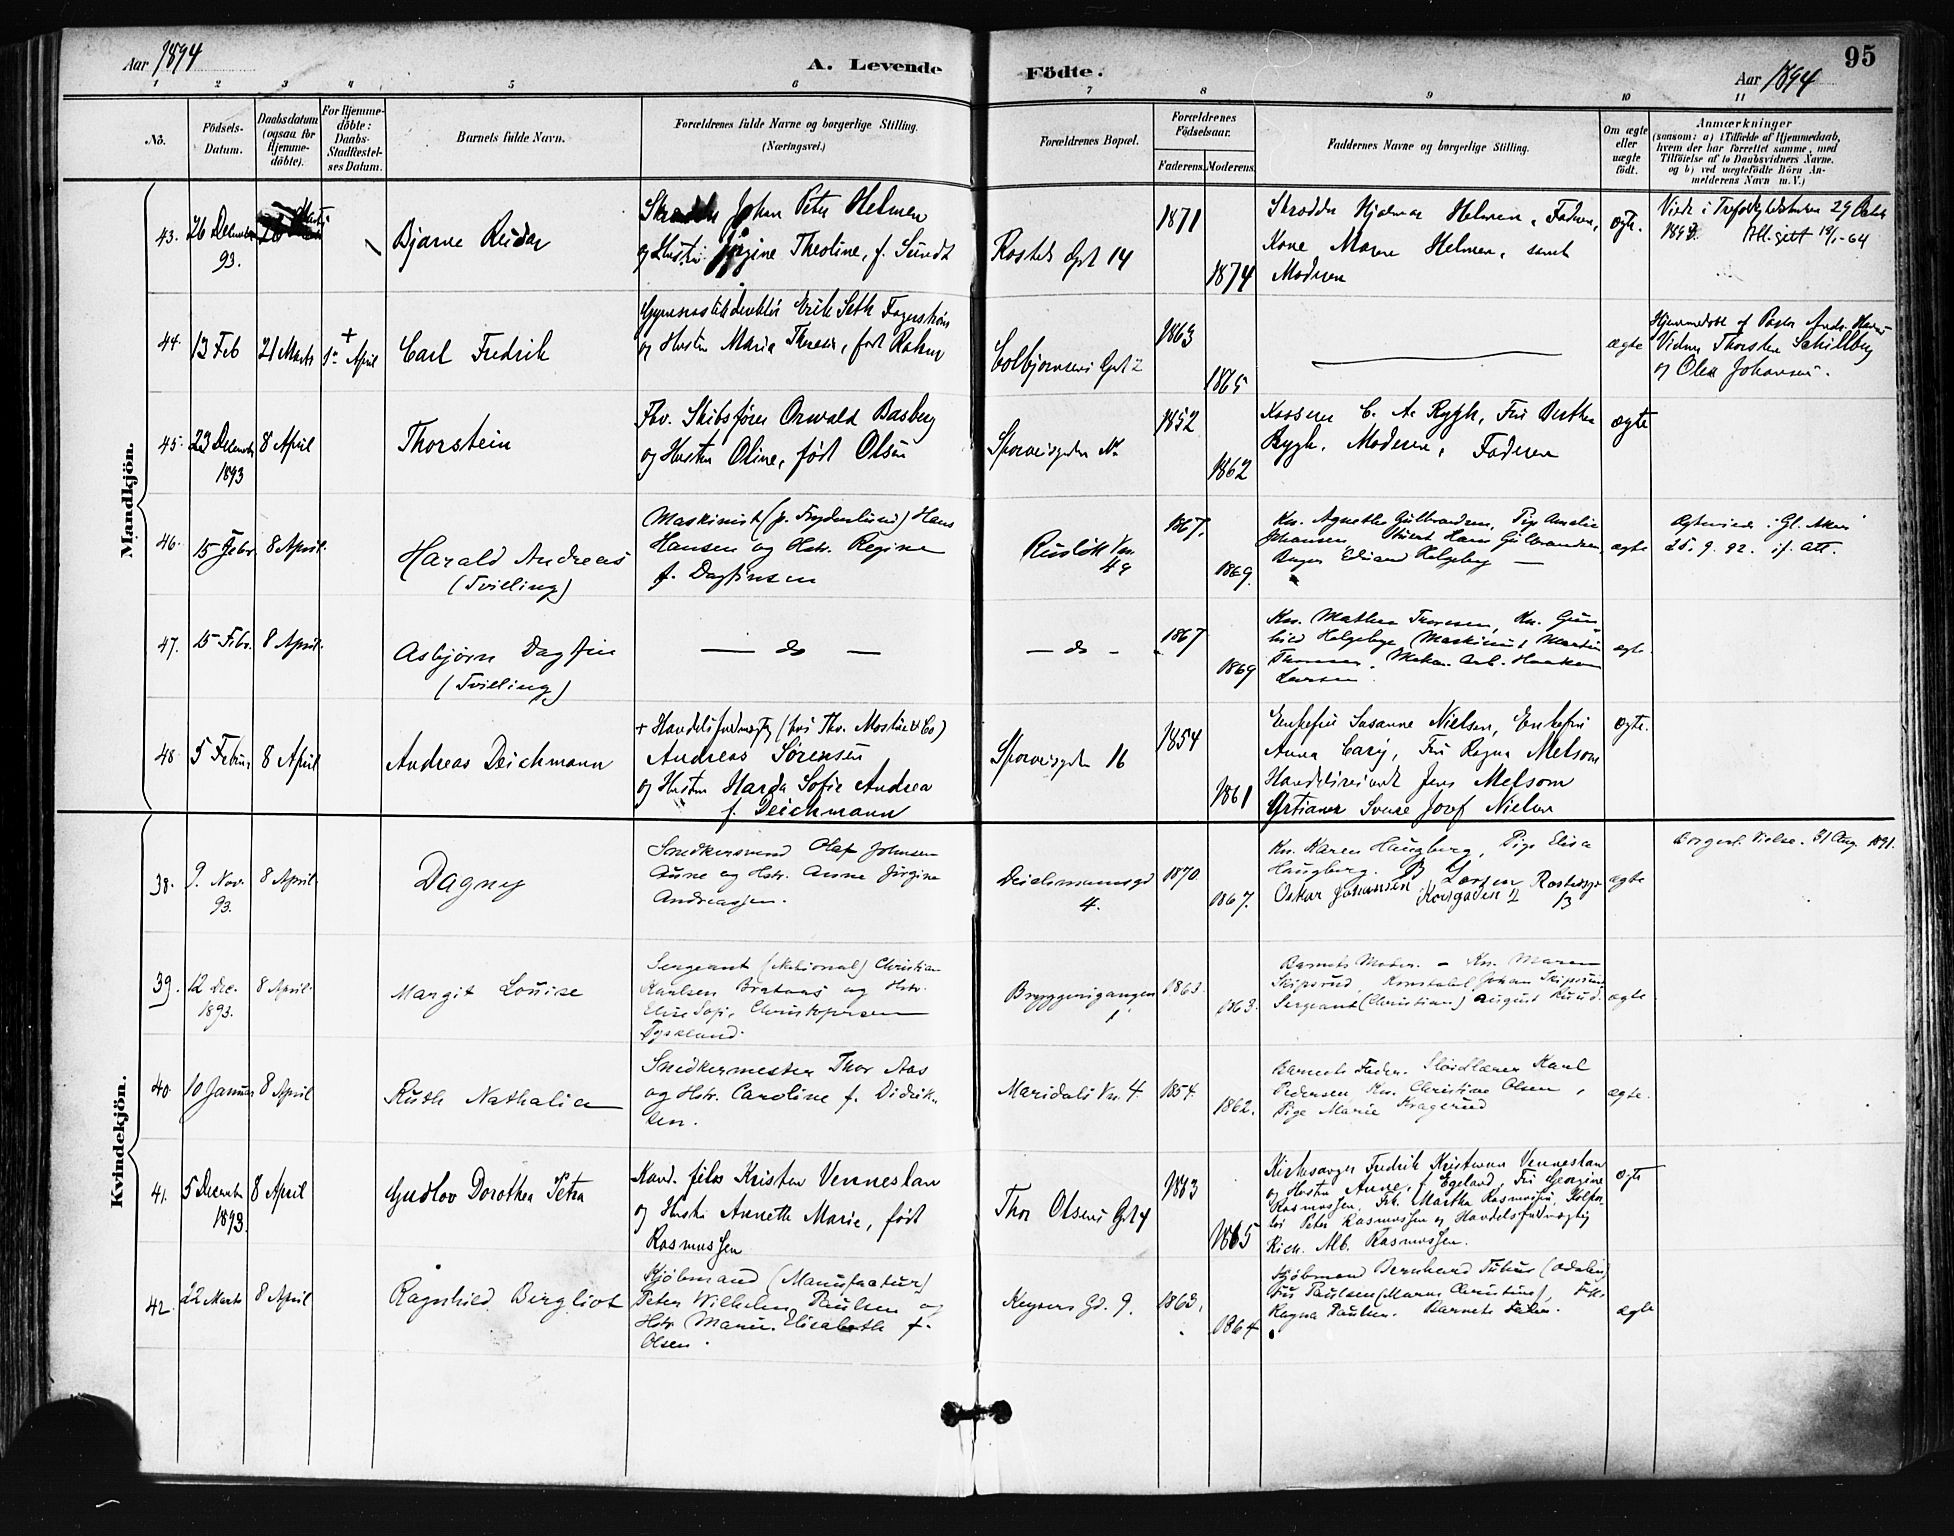 Aar 1894
A. Levende
Födte.
95
Aar 1894
1 2 3 4 5 6 7 8 9 10 11
No.
Födsels-
Datum.
Daabsdatum
(ogsaa for
Hjemme-
döbte).
For Hjemme-
döbte:
Daabs-
Stadfæstel-
ses Datum.
Barnets fulde Navn.
Forældrenes fulde Navne og borgerlige Stilling.
(Næringsvei.)
Forældrenes Bopæl.
Forældrenes
Födselsaar.
Faderens. Moderens.
Faddernes Navne og borgerlige Stilling.
Om ægte
eller
uægte
födt.
Anmærkninger
(saasom: a) i Tilfælde af Hjemmedaab,
hvem der har forrettet samme, med
Tilföielse af to Daabsvidners Navne.
og b) ved uægtefödte Börn An-
melderens Navn m. V.)
Mandkjön.
43.
26 Decembr
93.
Bjarne Reidar
Johan Peter Helmen
og Hustru Jørgine Theoline, f. Sundt
Rosteds Gd 14
1871
1874
Skrædder Hjalmar Helmen, Fadren,
Kone Maren Helmen, samt
Modren
ægte.
Viede i Trefoldighedskirken 29 Octbr
44.
13 Feb
21 Marts
+
1ste April
Carl Fredrik
Gymnastikdirektør Erik Seth Fagerstrøm
og Hustru Maria Theresia, født
Colbjørnsens Gd 2
1863
1865
ægte
Hjemmedøbt af Pastor
Vidner Thorsten
og Olea Johansen.
45.
23 Decembr
1893
8 April
Thorstein
Fhv. Skibsfører Osvald Basberg
og Hustru Oline, født Olsen
Sporveisgaden
1852
1862
C. A. Rygh, Fru Berthe
Rygh. Moderen, Faderen
ægte
46.
15 Febr.
8 April.
Harald Andreas
(Tvilling)
Maskinist (p. Frydenlund) Hans
Hansen og Hstr. Regine
f. Dagfinsen
Ruslök Vn.
49
1867.
1869.
Kn. Agnethe Gulbrandsen, Pige Amalie
Johansen Hans Gulbrandsen,
Helgeby
ægte
Ægteviede i Gl. Aker
25. 9. 92. if. att.
47.
15 Febr.
8 April.
Asbjørn Dagfin
(Tvilling)
— do —
— do —
1867
1869
Kn. Mathea Thoresen, Kn. Gun-
hild Helgebye, Maskinist Martin
Thoresen, Mekan. Arb. Haakon
Larsen.
ægte.
48.
5 Februar
8 April
Andreas Deichmann
+ Handelsfuldmægtig (hos Thv. Mostue & Co)
Andreas Sørensen
og Hustru Harda Sofie Andrea
f. Deichmann
Sporveisgaden 16
1854
1861
Enkefru Susanne Nielsen, Enkefru
Anna Fru Ragna Melsom
Handelsreisende Jens Melsom
Artianer Sverre Nielsen
ægte.
Kvindekjön.
38.
9. Nov.
93.
8 April
Dagny
Snedkersvend Olaf Johnsen
Aune og Hstr. Anne Jørgine
Andreassen.
Deichmannsgd
4.
1870
1867.
Kn. Karen Haugberg, Pige Elisa
Haugberg. B Larsen Rostedsgd
Oskar Johansen Korsgaden 2 13
ægte
Borgerl. Vielse. 31 Aug. 1891.
39.
12 Dec.
1893.
8 April.
Margit Louise
Sergeant (National) Christian
Karlsen Brataas og Hstr.
Elise Sofie Christophersen
Tyskland.
Bryggerigangen
1.
1863
1863.
Barnets Moder. – Kn. Maren
Skipsrud, Konstabel Johan Skipsrud
Sergeant (Christian) August Ruud.
ægte
40.
10 Januar
8 April
Ruth Nathalia
Snedkermester Thor Aas
og Hstr. Caroline f. Didrik-
sen.
Maridals Vn. 4
1854.
1862.
Barnets Fader. Sløidlærer Karl
Pedersen, Kn. Christine Olsen,
Pige Marie Kragerud
ægte.
41.
5 Decembr
1893.
8 April
Gudlov Dorothea Petra
Kand. filos Kristen Venneslan
og Hustru Anneth Marie, født
Rasmussen
Thor Olsens Gd 4
1863
1865
Kirkesanger Fredrik Kristensen Venneslan
og Hustru Anne, f. Egeland, Fru Georgine
Rasmussen, Frk. Martha Rasmussen, Kolpor-
tør Peter Rasmussen og Handelsfuldmægtig
Rich. Alb. Rasmussen.
ægte
42.
22 Marts
8 April
Ragnhild Bergliot
Kjøbmand (Manufactur)
Peter Wilhelm Paulsen og
Hstr. Marie Elisabeth f.
Olsen.
Keysers Gd. 9.
1863.
1864
Kjøbmand Bernhard
Fru Paulsen (Maren Christine), Frk.
Ragna Paulsen. Barnets Fader.
ægte